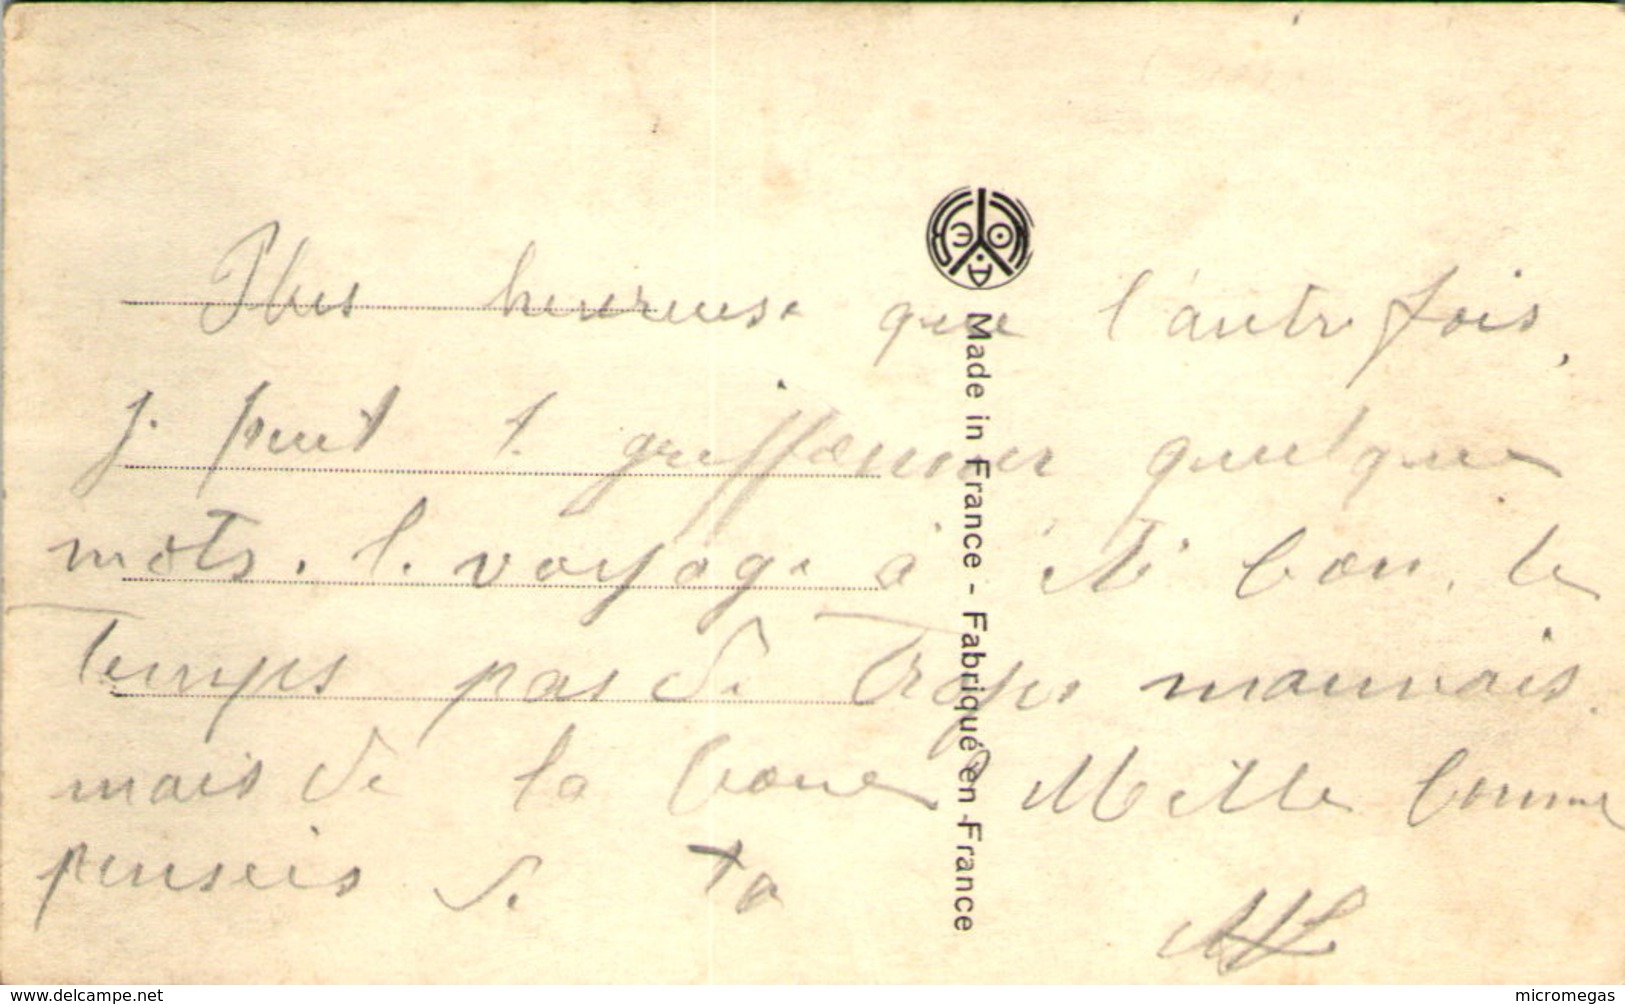 Plus heureuse que l'autre fois,
je peut te griffonner quelque
mots. le voyage à été bon, le
Temps pas de Trops mauvais.
mais de la boue Mille bonne
penseis de ta
Made in France - Fabriqué en France
www.delcampe.net
micromegas